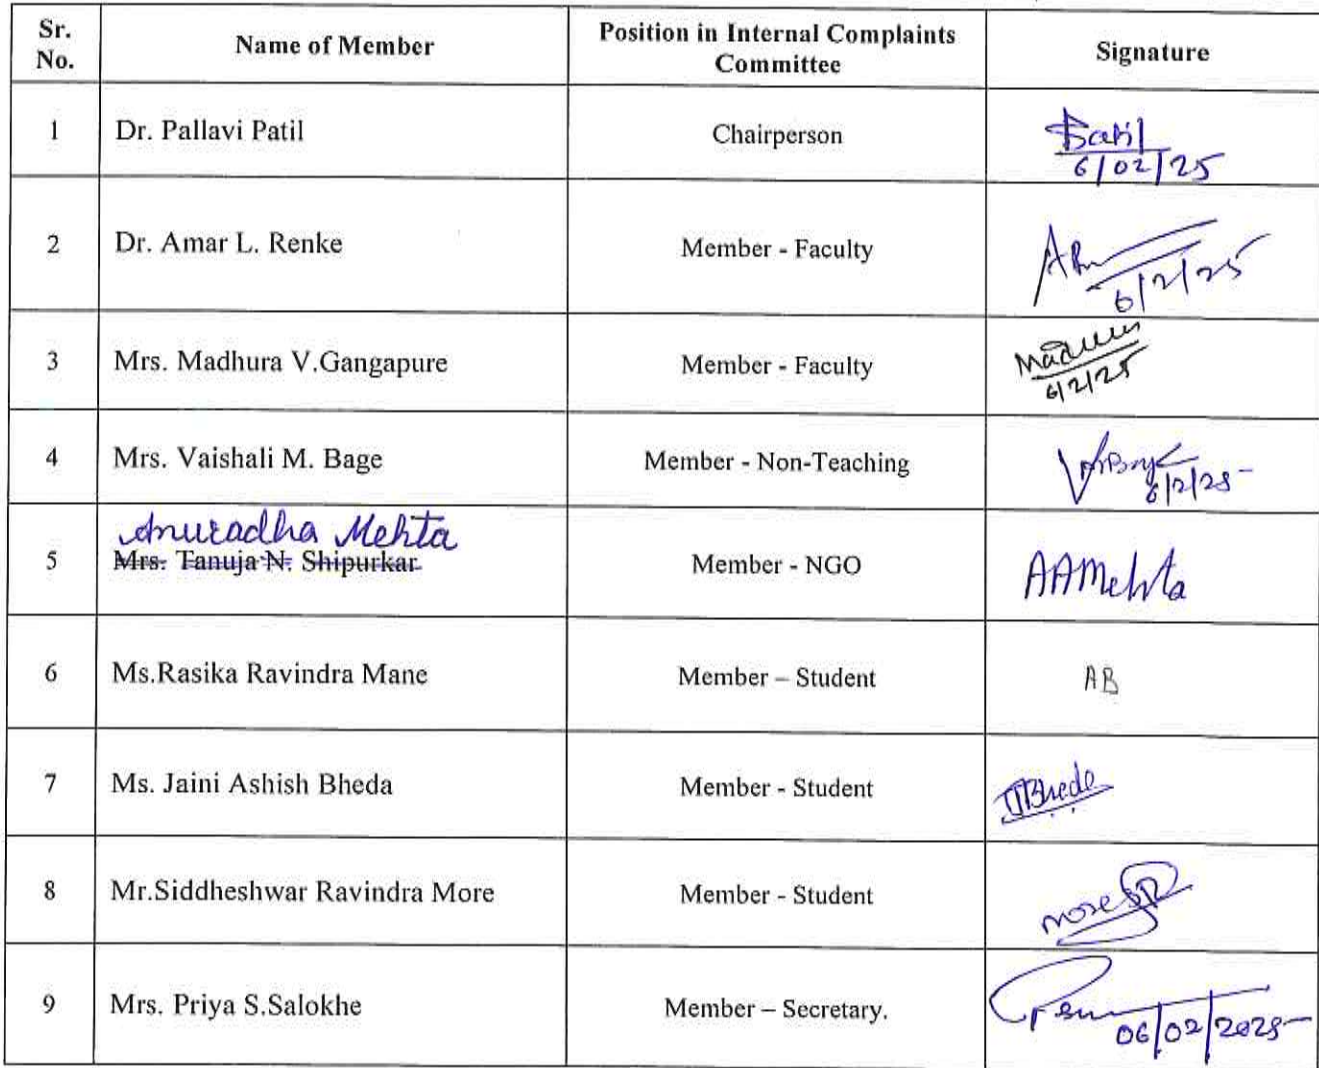 Sr. No. Name of Member Position in Internal Complaints Committee Signature
1 Dr. Pallavi Patil Chairperson Patil
6/02/25
2 Dr. Amar L. Renke Member - Faculty
6/2/25
3 Mrs. Madhura V.Gangapure Member - Faculty
6/2/25
4 Mrs. Vaishali M. Bage Member - Non-Teaching
6/2/25
Anuradha Mehta
5 Mrs. Tanuja N. Shipurkar Member - NGO AAMehta
6 Ms.Rasika Ravindra Mane Member – Student AB
7 Ms. Jaini Ashish Bheda Member - Student JABheda
8 Mr.Siddheshwar Ravindra More Member - Student More SR
9 Mrs. Priya S.Salokhe Member – Secretary.
06/02/2025